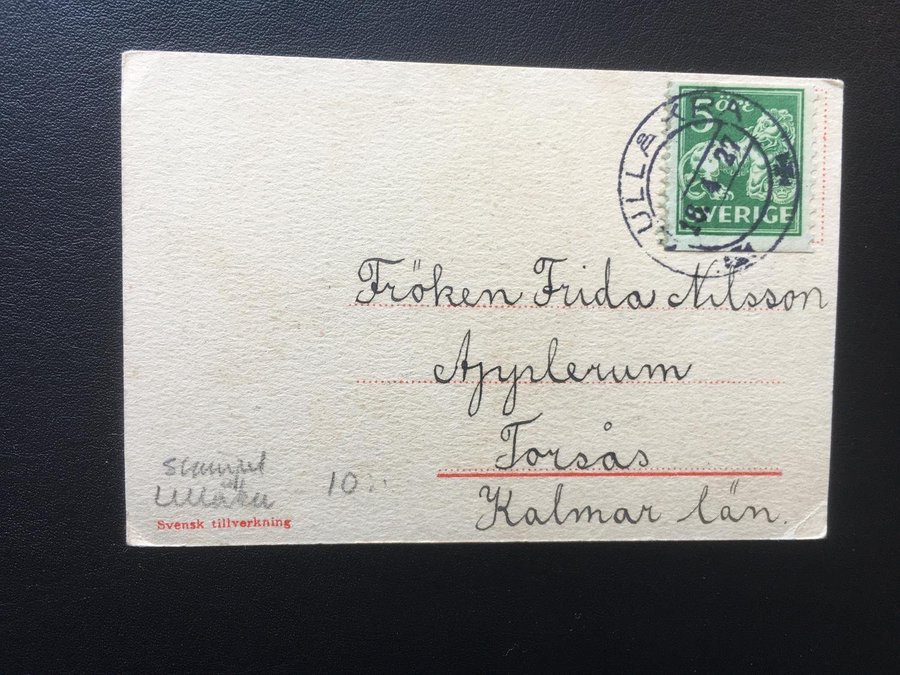 5 ÖRE
SVERIGE
ULLÅKRA
18.4.27
Fröken Frida Nilsson
Applerum
Torsås
Kalmar län.
Stämpel
Ullåkra
10:-
Svensk tillverkning